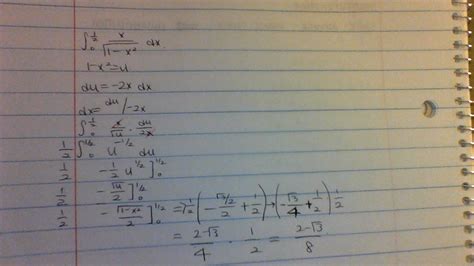 ∫₀^½ x/√(1-x²) dx
1-x²=u
du=-2x dx
dx=du/-2x
∫₀^½ x/√u · du/2x
½ ∫₀^1/2 u^-1/2 du
½ -½ u^1/2 ]₀^1/2
½ -√u/2 ]₀^1/2
½ -√(1-x²)/2 ]₀^1/2 => ½ (-(√3/2)/2 + ½) → (-√3/4 + ½) ½
= (2-√3)/4 · ½ = (2-√3)/8